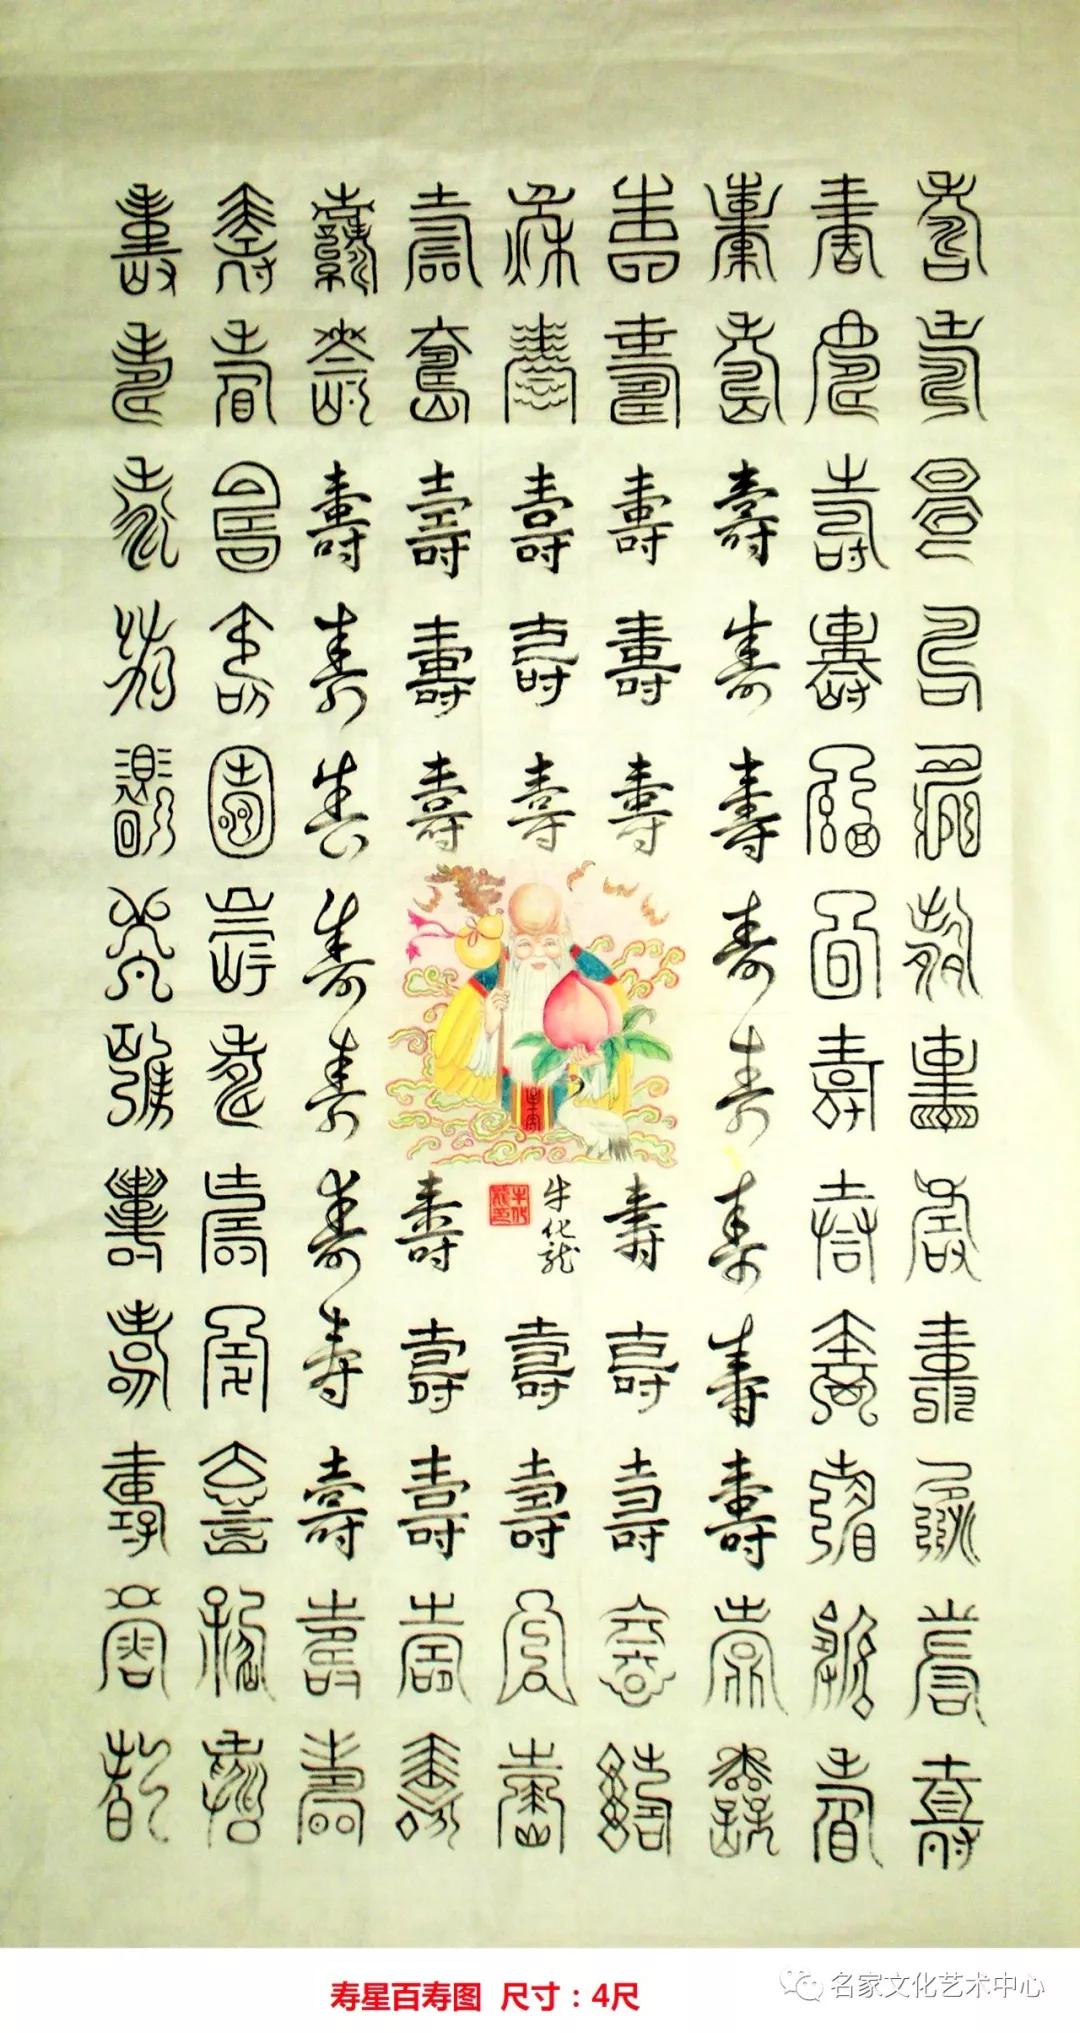 壽壽壽壽壽壽壽壽壽壽壽壽
壽壽壽壽壽壽壽壽壽壽壽壽
壽壽壽壽壽壽壽壽壽壽壽壽
壽壽壽壽壽壽壽壽壽壽
壽壽壽壽壽壽壽壽壽
壽壽壽壽壽壽壽壽壽壽
壽壽壽壽壽壽壽壽壽壽壽壽
壽壽壽壽壽壽壽壽壽壽壽壽
壽壽壽壽壽壽壽壽壽壽壽壽
牛化龍
寿星百寿图 尺寸：4尺
名家文化艺术中心